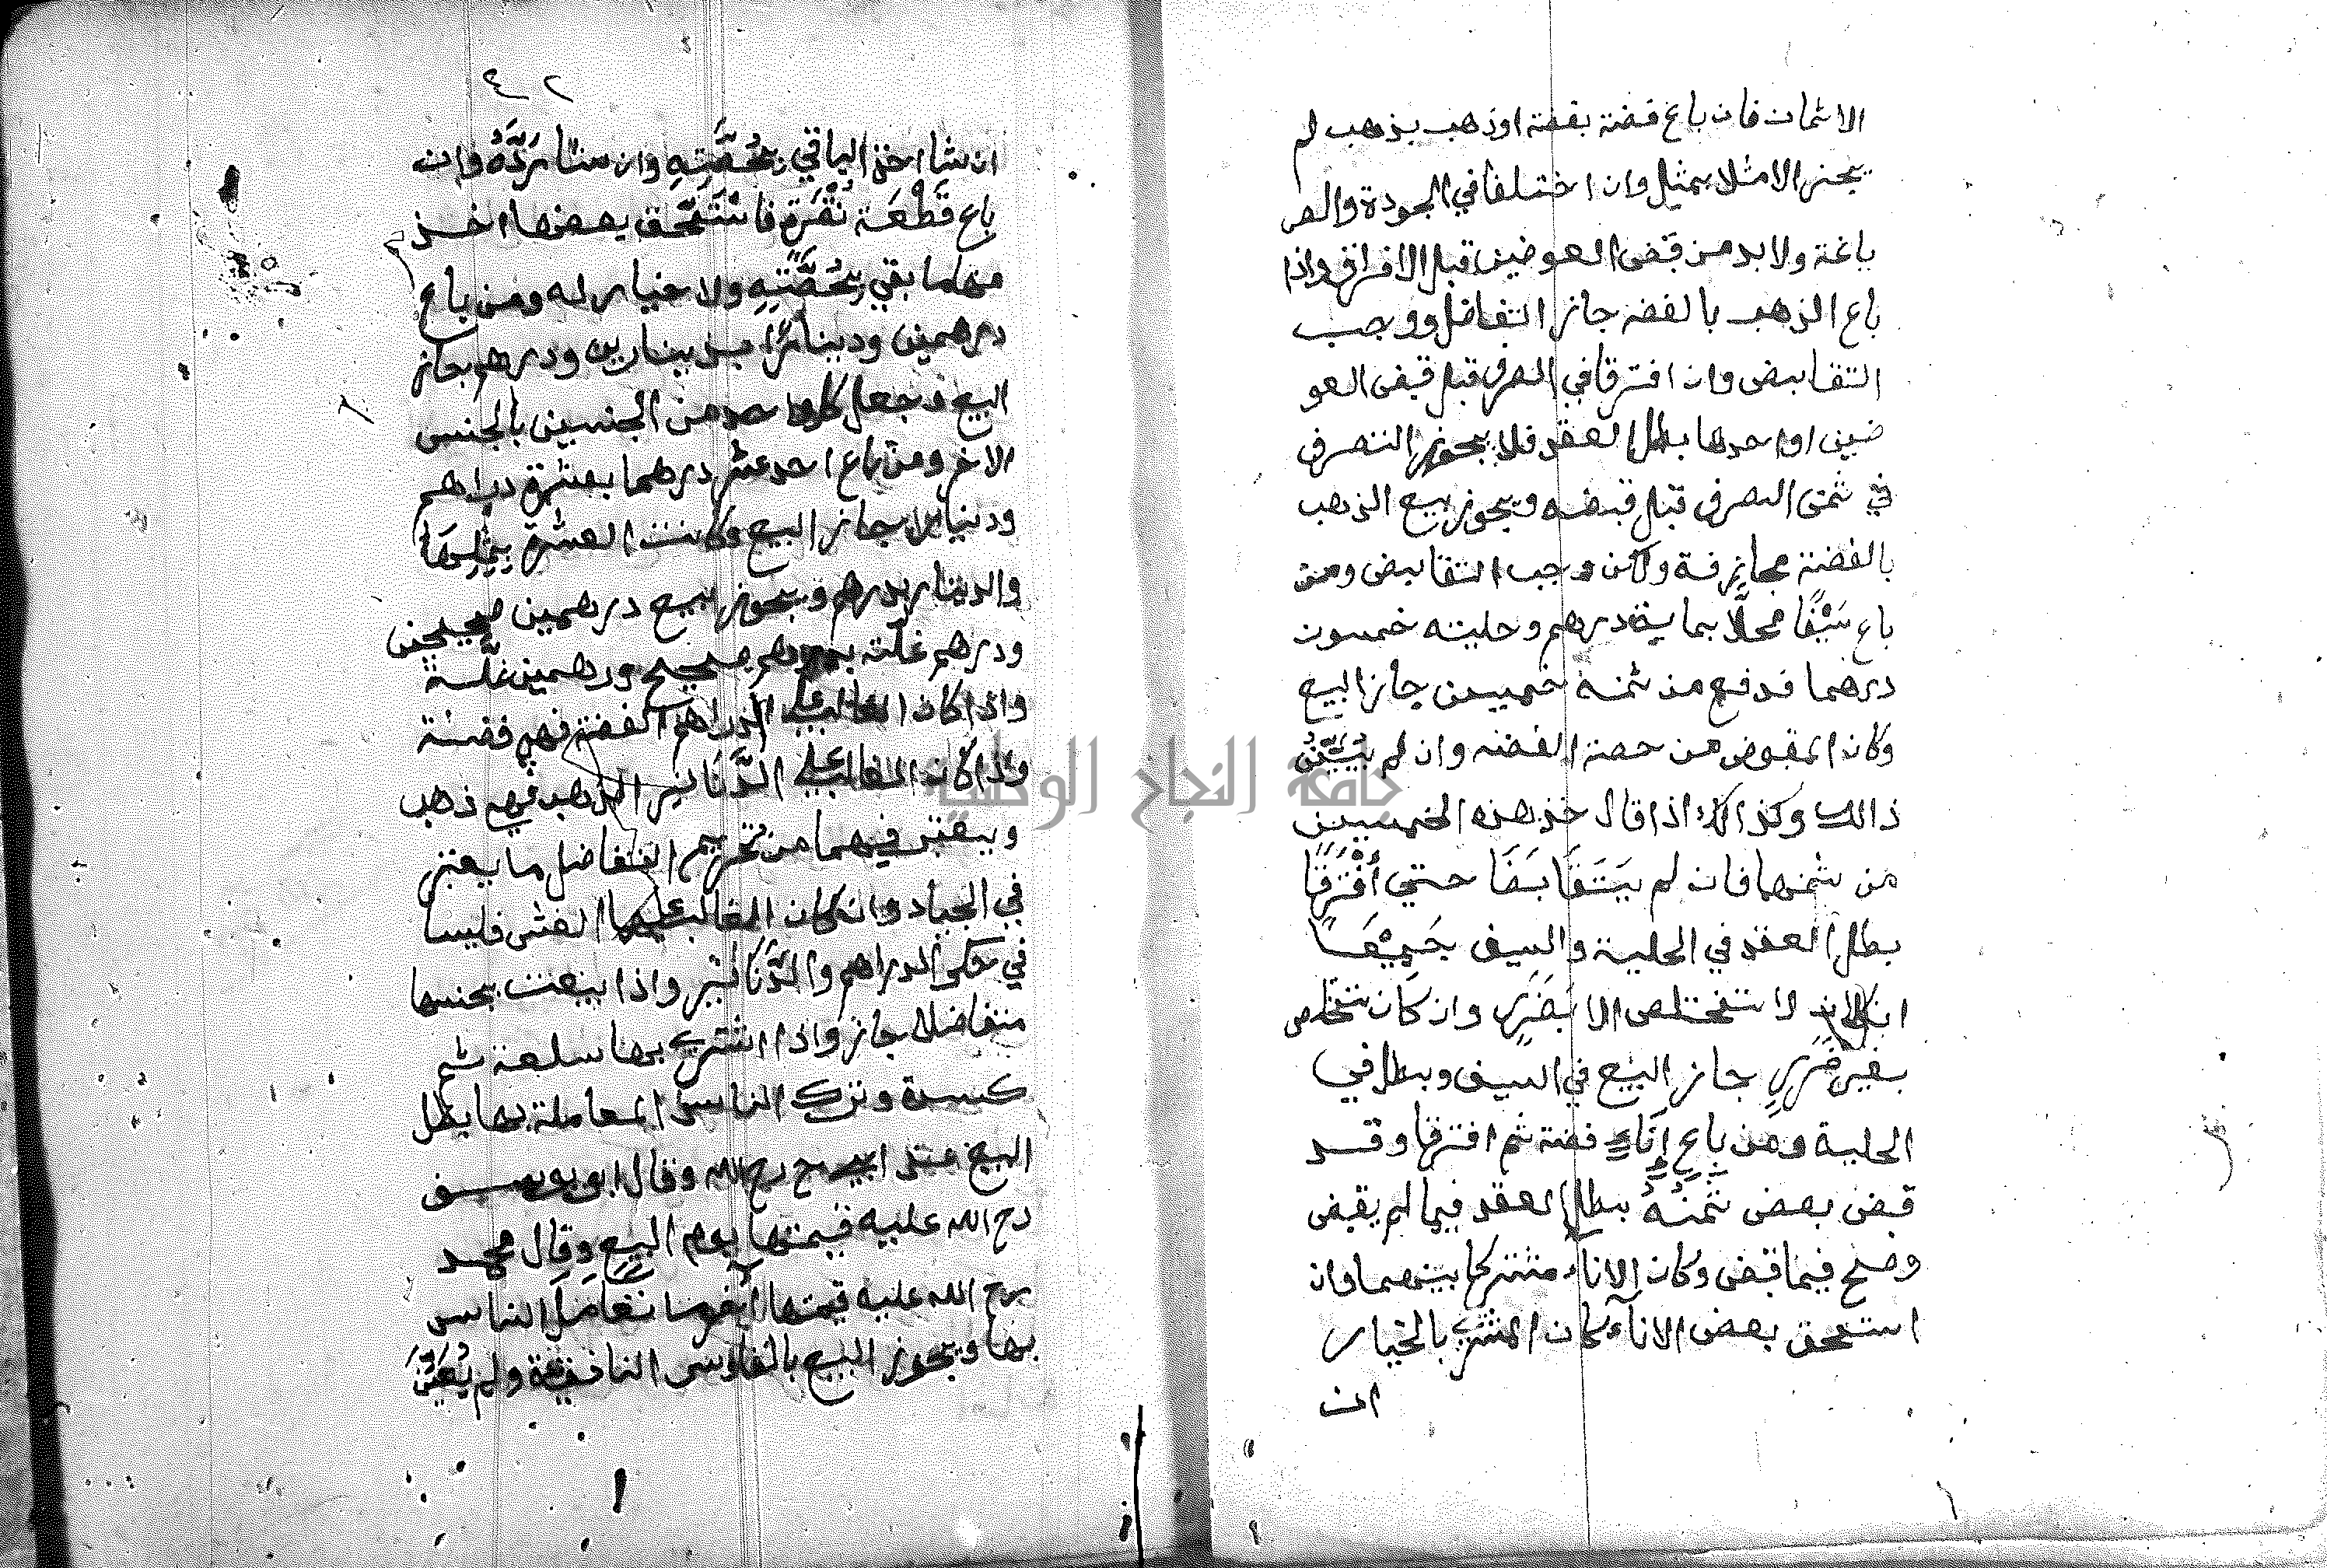 الاثمان فان باع فضة بفضة اوذهب بذهب لم
يجز الامثلا بمثل وان اختلفا في الجودة والص
ياغة ولا بد من قبض العوضين قبل الافتراق واذا
باع الذهب بالفضه جاز التفاضل ووجب
التقابض وان افترقا في الصرف قبل قبض العو
ضين او احدها بطل العقد فلا يجوز التصرف
في ثمن الصرف قبل قبضه ويجوز بيع الذهب
بالفضة مجازفة ولكن وجب التقابض ومن
باع سَيْفًا محلّا بماية درهم وحليته خمسون
درهما فدفع من ثمنه خمسين جاز البيع
وكان المقبوض من حصة الفضه وان لم يُبَيِّنُ
ذالك وكذالك اذا قال خذ هذه الخمسين
من ثمنهما فان لم يَتَقَابَضَا حتي أفْتَرَقَا
بطل العقد في الحلية والسيف جَمِيْعًا
ان كان لا تتخلص الا بضَرَرٍ وان كَان تتخلص
بغير ضَرَرٍ جاز البَيْع في السيف وبطل في
الحلية ومن باع إنَاءٍ فضة ثم افترقا وقد
قبض بعض ثَمَنُهُ بطل العقد فيما لم يقبض
وصلح فيما قبض وكان الاناء مشتركا بينهما وان
استحق بعض الاناء كان المشتري بالخيار
ان
٤٢
ان شا اخذ الباقي بِحُصَّتِهِ وان شا رَدَّهُ وان
باع قَطْعَة نُقْرَة فاسْتَحَّق بعضها اخذ
منها ما بقي بِحُصَّتِهِ ولا خيار له ومن باع
درهمين ودينارًا بدينارين ودرهم جاز
البيع وجعل كل واحد من الجنسين بالجنس
الاخر ومن باع احد عشر درهما بعشرة دراهم
ودينار جاز البيع وكانت العشرة بِمِثْلِهَا
والدينار بدرهم ويجوز بيع درهمين صحيحين
ودرهم غلّة بدرهم صحيح ودرهمين غَلَّة
واذا كان الغالب على الدراهم الفضة فهي فضة
واذا كان الغالب على الدَّنَانير الذهب فهي ذهب
ويعتبر فيهما من تحريم التفاضل ما يعتبر
في الجياد وان كان الغالب عليهما الغش فليسا
في حكم الدراهم والدَّنَانير واذا بيعت بجنسها
متفاضلا جاز واذا اشتري بها سلعة ثم
كسدة وترك الناس المعاملة بها بطل
البيع عند ابي ح رح الله وقال ابو يوسف
رح الله عليه قيمتها يوم البَيْعِ وقال محمد
رح الله عليه قيمتها أخر ما تعامل الناس
بها ويجوز البيع بالفلوس النافقة ولم يُعَيِّن